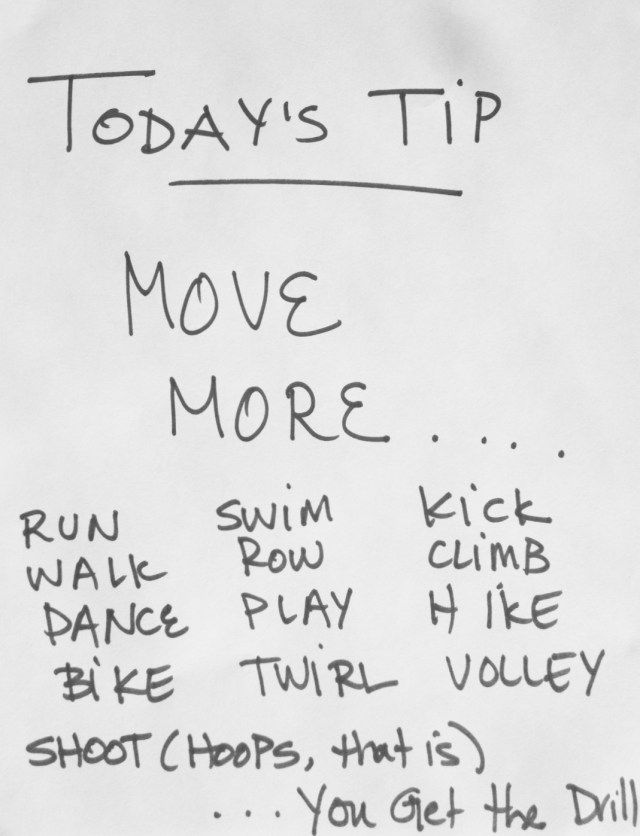 TODAY'S TiP
MOVE
MORE....
RUN SWiM KicK
WALK ROW CLimB
DANCE PLAY HIKE
BiKE TWiRL VOLLEY
SHOOT (HOOPS, that is)
...You Get the Drill